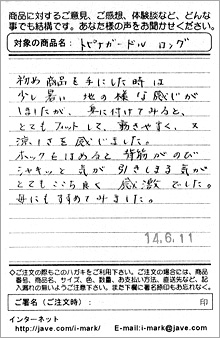 商品に対するご意見、ご感想、体験談など、どんな
事でも結構です。あなた様の声をお聞かせください。
対象の商品名: トピナガードル ロング
初め商品を手にした時は
少し暑い 地の様な感じが
しましたが、身に付けてみると、
とてもフィットして、動きやすく、又
涼しさを感じました。
ホックをはめると 背筋がのび
シャキッと 気が 引きしまる 気が
とてもここち良く 感激でした。
母にもすすめてみました。
14.6.11
◇ご注文の際もこのハガキをご利用下さい。ご注文の場合には、商品
番号、商品名、サイズ、色、数量、お支払い方法、直送先など、記
入漏れの無いようご注意下さい。また下欄に署名捺印もお忘れなく。
ご署名（ご注文時）: 印
インターネット
http://jave.com/i-mark/ E-mail:i-mark@jave.com